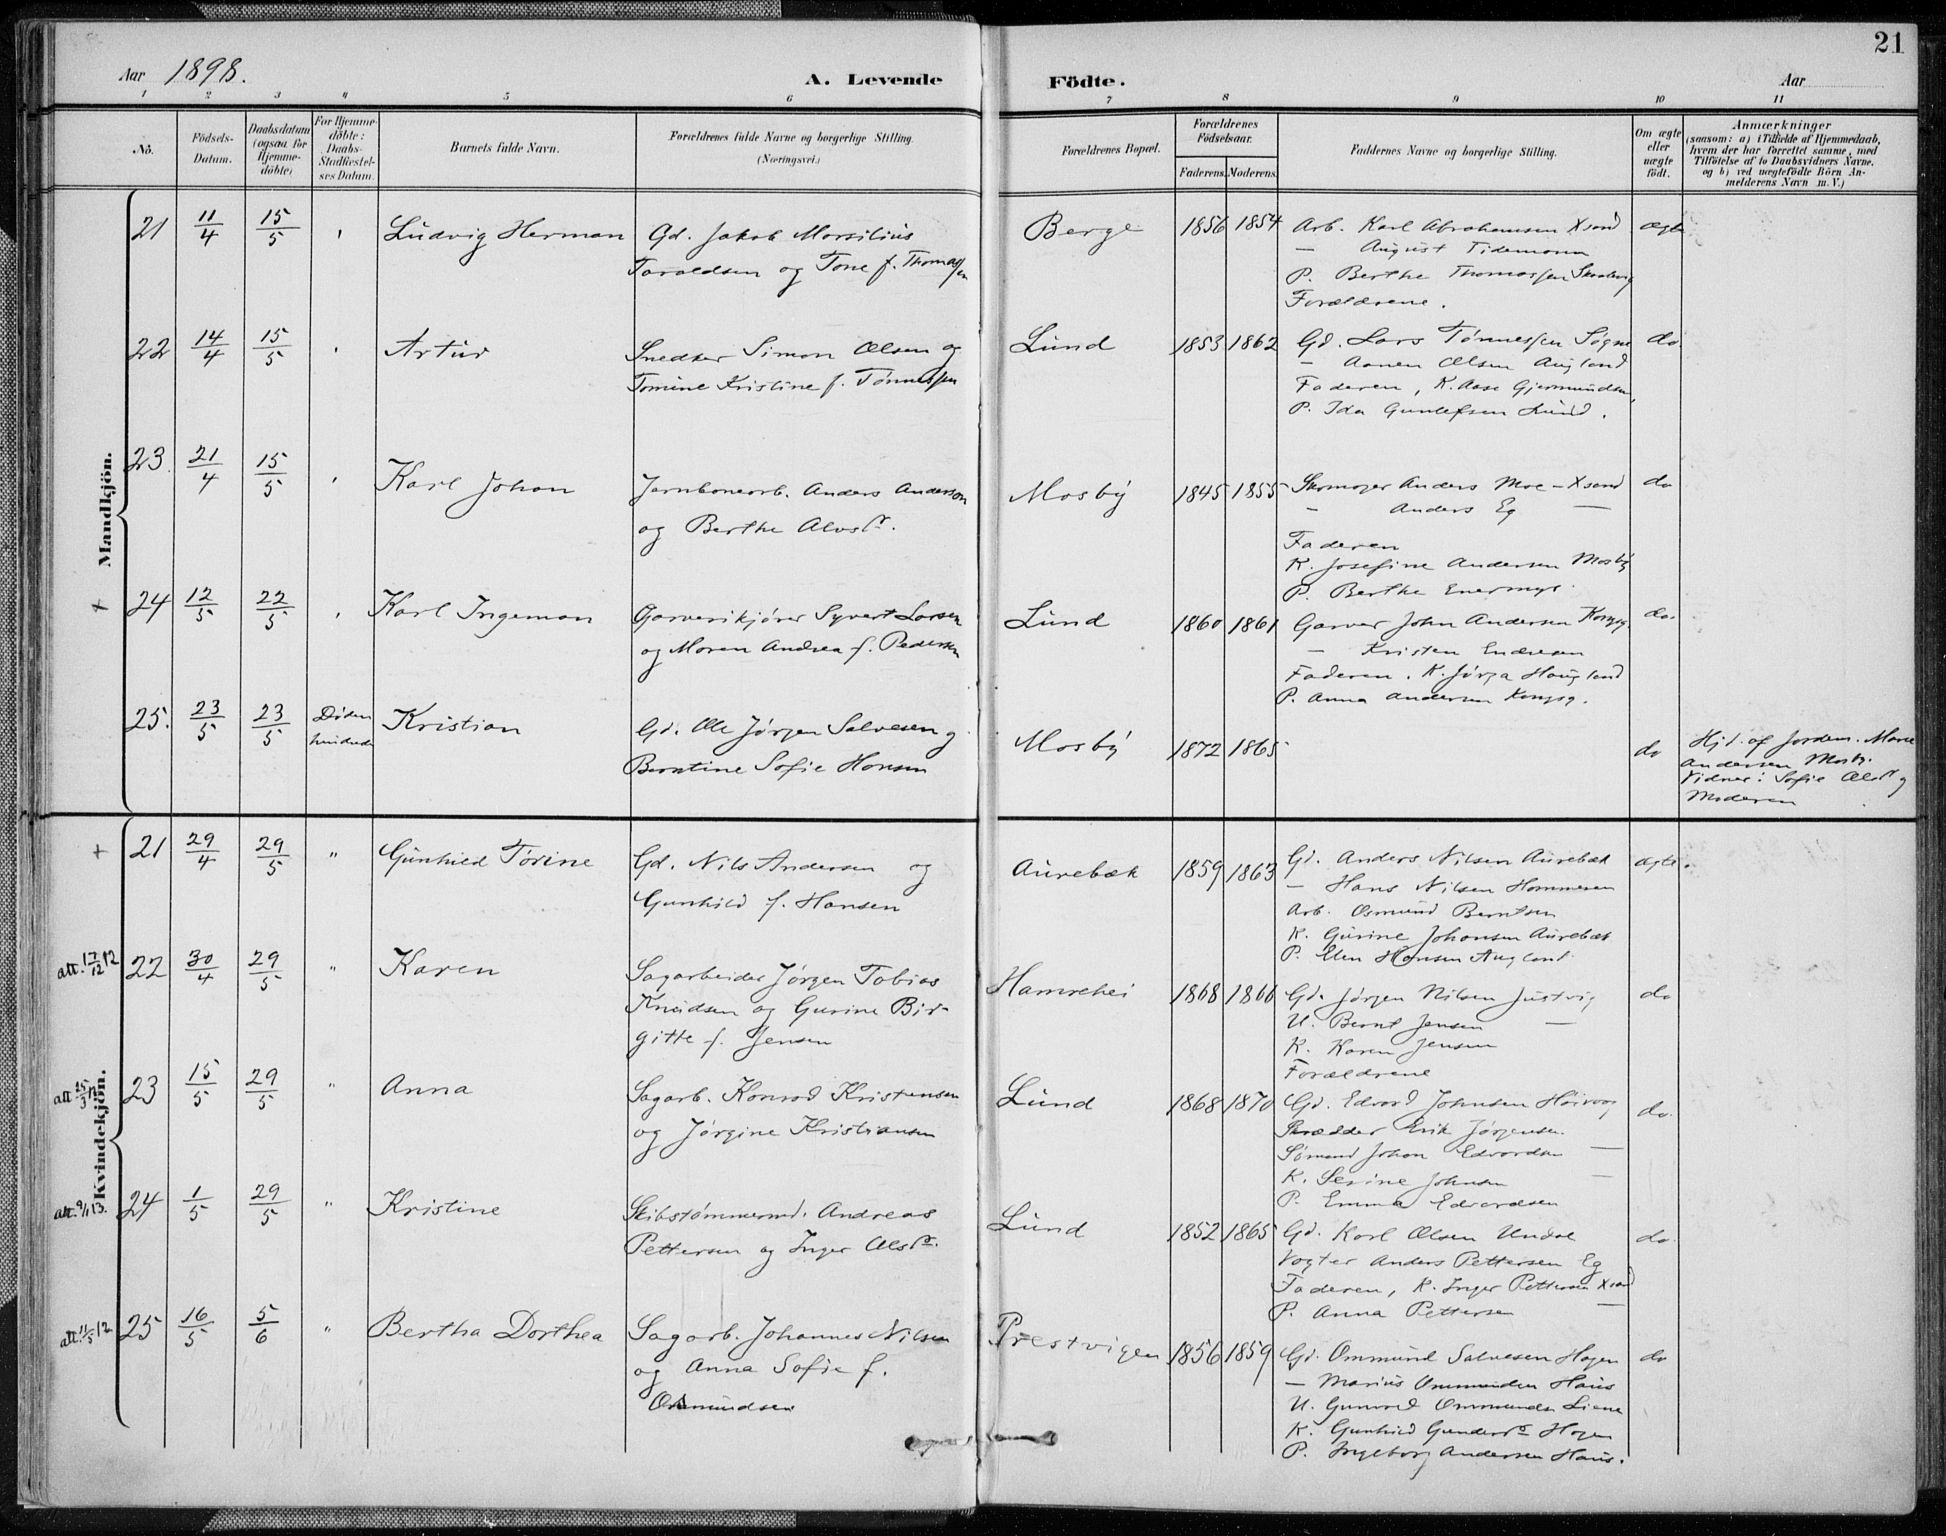 21
Aar 1898.
A. Levende Födte.
Aar
1 2 3 4 5 6 7 8 9 10 11
No.
Födsels-Datum.
Daabsdatum (ogsaa for Hjemme-döbte)
For Hjemme-döbte: Daabs-Stadfæstel-ses Datum.
Barnets fulde Navn.
Forældrenes fulde Navne og borgerlige Stilling.
(Næringsvei.)
Forældrenes Bopæl.
Forældrenes Födselsaar.
Faderens. Moderens.
Faddernes Navne og borgerlige Stilling.
Om ægte eller uægte födt.
Anmærkninger
(saasom: a) i Tilfælde af Hjemmedaab, hvem der har forrettet samme, med Tilföielse af to Daabsvidners Navne, og b) ved uægtefödte Börn Anmelderens Navn m. V.)
Mandkjön.
21 11/4 15/5 Ludvig Herman
Gd. Jakob Marsilius
Taraldsen og Tone f. Thomassen
Berge 1856 1854
Arb. Karl Abrahamsen Xsand
— August Tidemann
P. Berthe Thomassen
Forældrene.
ægte
22 14/4 15/5 Artur
Snedker Simon Olsen og
Tomine Kristine f. Tønnessen
Lund 1853 1862
Gd. Lars Tønnessen Søgne
— Aanen Olsen Augland
Faderen, K. Aase Gjermundsen,
P. Ida Gunlefsen Lund.
do
23 21/4 15/5 Karl Johan
Jernbanearb. Anders Anderson
og Berthe Alvsdr.
Mosby 1845 1855
Skomager Anders Moe – Xsand
— Anders Eg —
Faderen
K. Josefine Andersen Mosby
P. Berthe
do
+ 24 12/5 22/5 Karl Ingeman
Garverikjører Syvert Larsen
og Maren Andrea f. Pedersen
Lund 1860 1861
Garver John Andersen Kongsg.
— Kristen Endresen
Faderen. K. Jørga Haugland
P. Anna Andersen Kongsg.
do.
25. 23/5 23/5 Døden hindrede Kristian
Gd. Ole Jørgen Salvesen og
Berntine Sofie Hansen
Mosby 1872 1865
do
Hjd. af Jordem. Marie
Andersen Mosby.
Vidner: Sofie Olsdr og
Moderen
Kvindekjön.
+ 21 29/4 29/5 " Gunhild Torine
Gd. Nils Andersen og
Gunhild f. Hansen
Aurebæk 1859 1863
Gd. Anders Nilsen Aurebæk
— Hans Nilsen Hommeren
Arb. Osmund Berntsen
K. Gurine Johansen Aurebæk
P. Elen Hansen Augland
ægte.
att. 17/12 12 22 30/4 29/5 " Karen
Sagarbeider Jørgen Tobias
Knudsen og Gurine Bir-
gitte f. Jensen
Hamrehei 1868 1866
Gd. Jørgen Nilsen Justvig
U. Bernt Jensen —
K. Karen Jensen
Forældrene
do
att 23 15/5 29/5 " Anna
Sagarb. Konrad Kristensen
og Jørgine Kristiansen
Lund 1868 1870
Gd. Edvard Johnsen Høivog
Skrædder Erik Jørgensen
Sømand Johan Edvardsen —
K. Serine Johnsen —
P. Emma Edvardsen
do.
att. 9/1 13. 24 1/5 29/5 " Kristine
Skibstømmermd. Andreas
Pettersen og Inger Olsdr.
Lund 1852 1865
Gd. Karl Olsen Undal
Vogter Anders Pettersen Eg
Faderen, K. Inger Pettersen Xsand
P. Anna Pettersen —
do.
att. 11/5 12 25 16/5 5/6 " Bertha Dorthea
Sagarb. Johannes Nilsen
og Anna Sofie f.
Osmundsen
Prestvigen 1856 1859
Gd. Ommund Salvesen Hagen
— Marius Ommundsen Haus
U. Gunvald Ommundsen Liene
K. Gunhild Gundersdr Hagen
P. Ingeborg Andersen Haus.
do